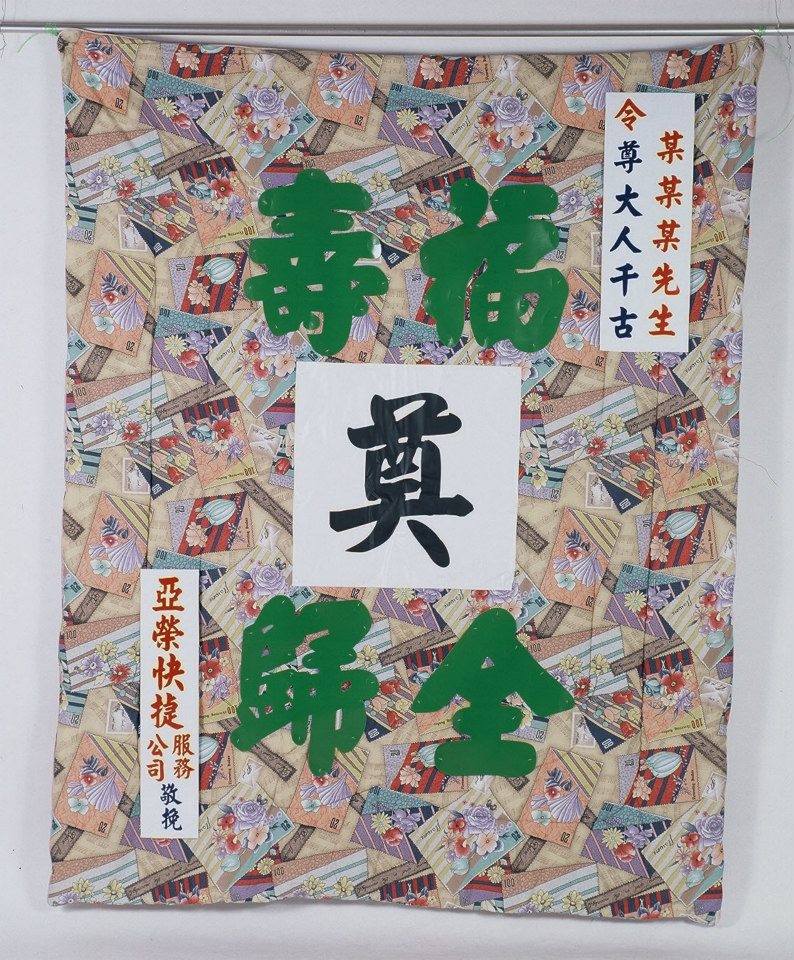 某某某先生
令尊大人千古
福壽
奠
全歸
亞榮快捷服務公司敬挽